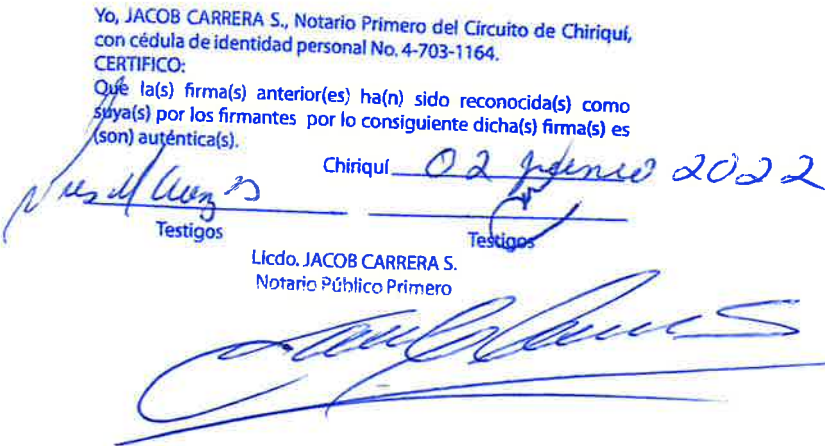 Yo, JACOB CARRERA S., Notario Primero del Circuito de Chiriquí,
con cédula de identidad personal No. 4-703-1164.
CERTIFICO:
Que la(s) firma(s) anterior(es) ha(n) sido reconocida(s) como
suya(s) por los firmantes por lo consiguiente dicha(s) firma(s) es
(son) auténtica(s).
Chiriquí 02 junio 2022
Testigos Testigos
Licdo. JACOB CARRERA S.
Notario Público Primero